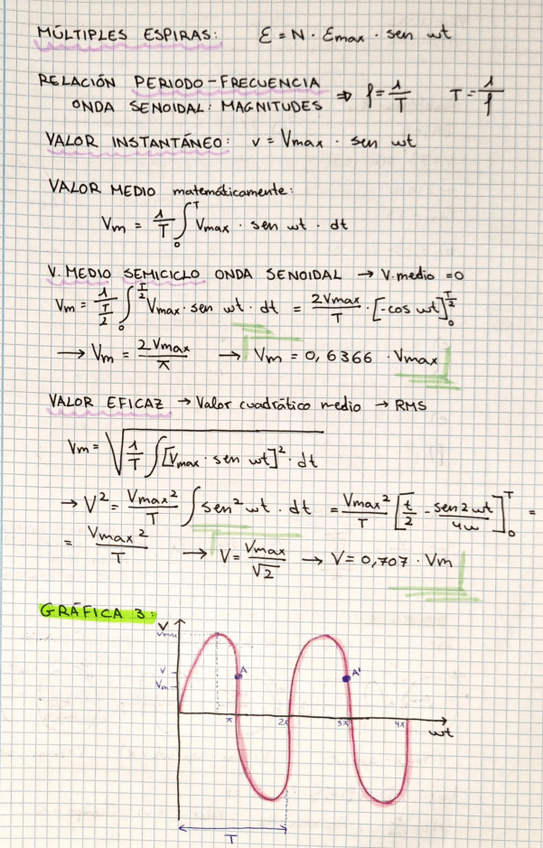 MÚLTIPLES ESPIRAS: Ɛ = N · Ɛmax · sen wt
RELACIÓN PERIODO-FRECUENCIA
ONDA SENOIDAL: MAGNITUDES ⇒ f = 1/T T = 1/f
VALOR INSTANTÁNEO: v = Vmax · sen wt
VALOR MEDIO matemáticamente:
Vm = 1/T ∫₀ᵀ Vmax · sen wt · dt
V. MEDIO SEMICICLO ONDA SENOIDAL → V.medio = 0
Vm = 1/(T/2) ∫₀^(T/2) Vmax · sen wt · dt = 2Vmax/T · [-cos wt]₀^(T/2)
→ Vm = 2Vmax/π → Vm = 0,6366 · Vmax
VALOR EFICAZ → Valor cuadrático medio → RMS
Vm = √(1/T ∫[Vmax · sen wt]² · dt)
→ V² = Vmax²/T ∫ sen² wt · dt = Vmax²/T [t/2 - sen2wt/4w]₀ᵀ =
= Vmax²/T → V = Vmax/√2 → V = 0,707 · Vm
GRÁFICA 3:
V
Vmax
V
Vm
A
A'
π 2π 3π 4π
wt
T